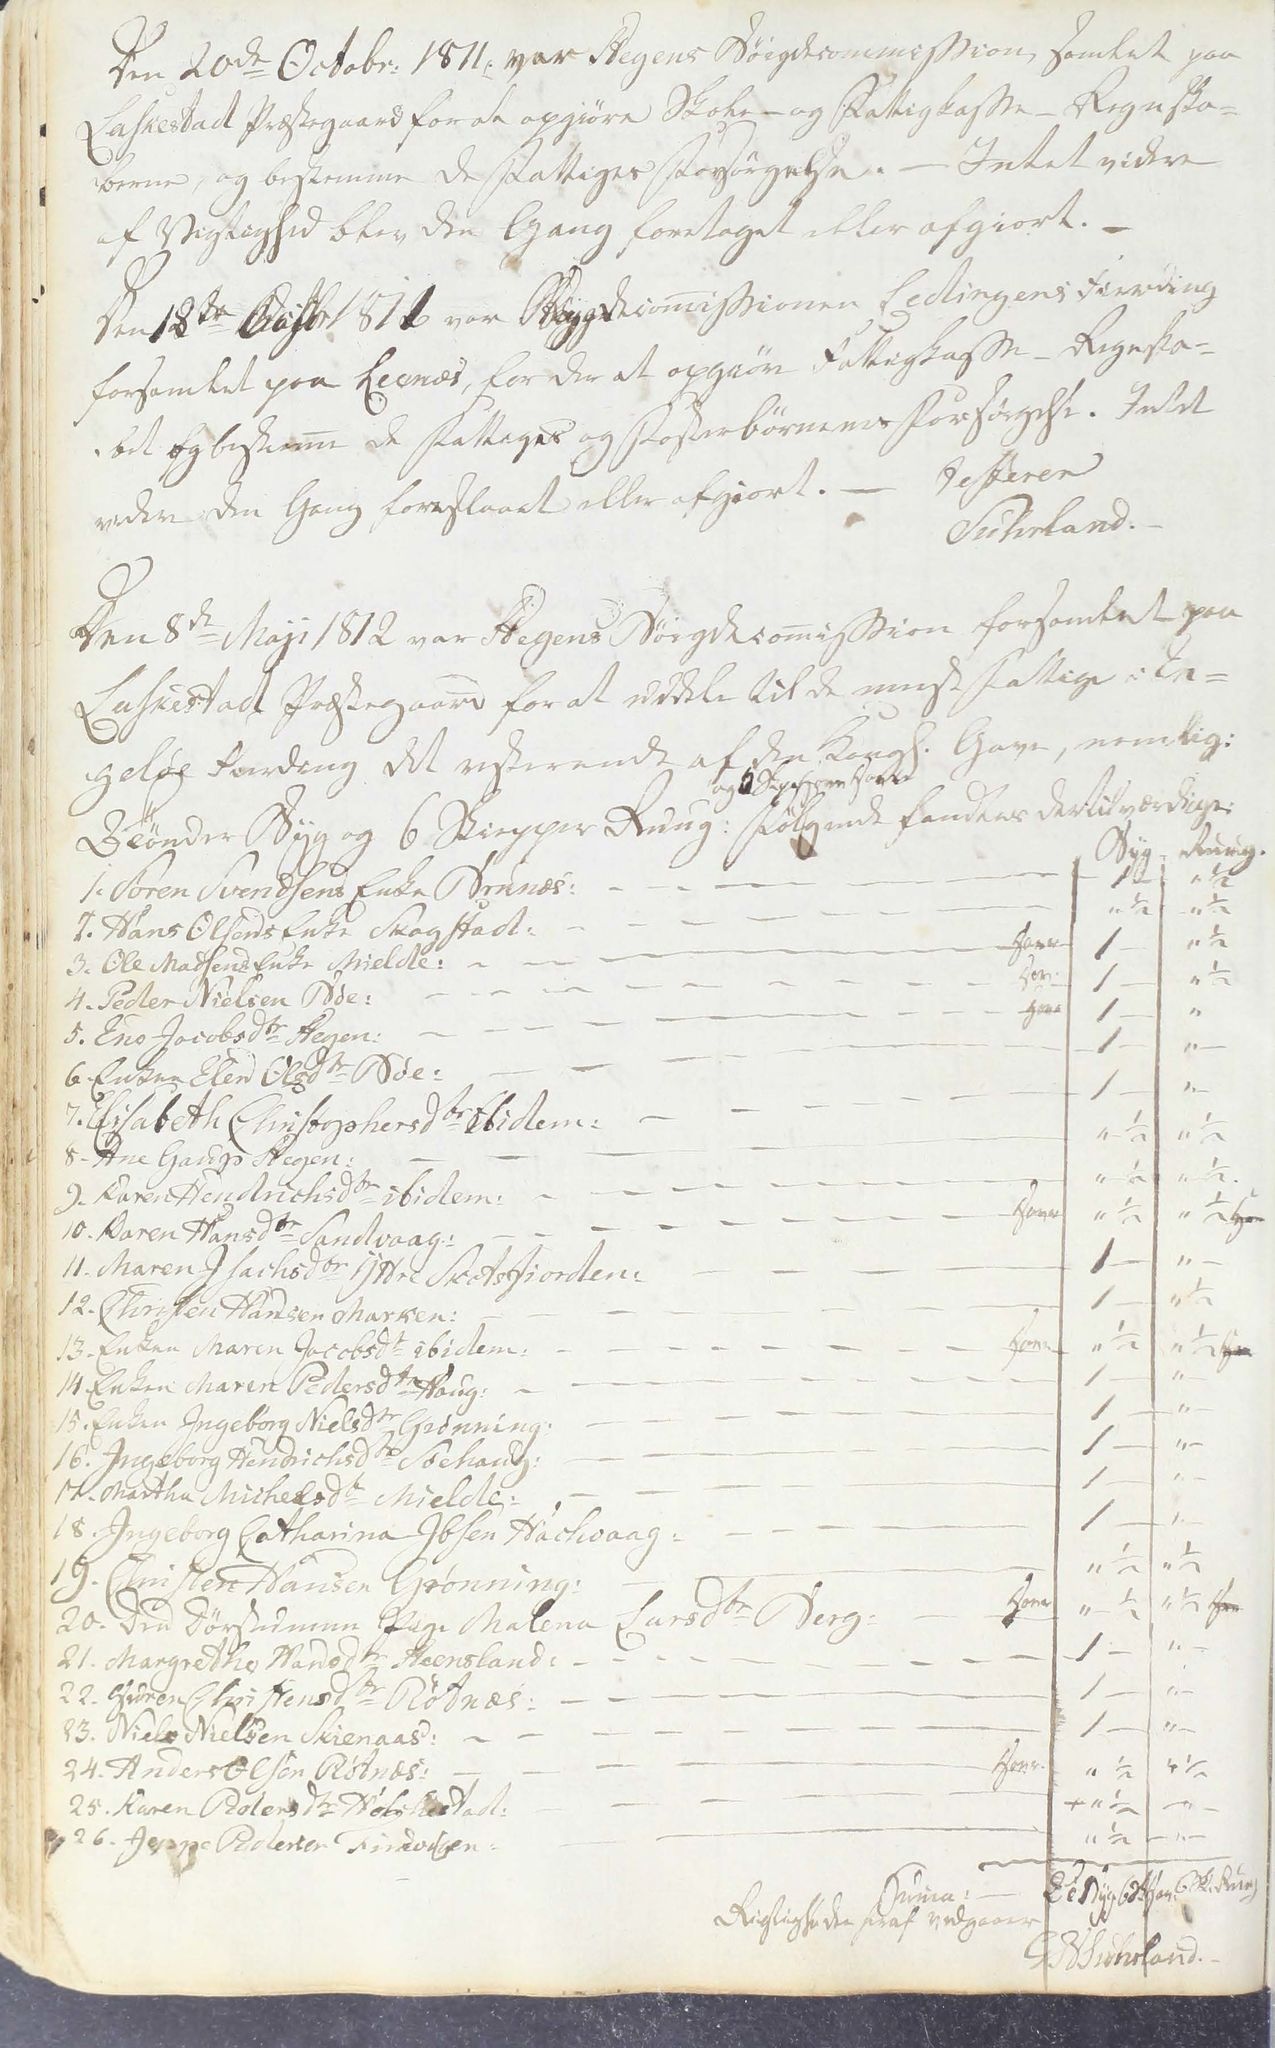 Den 20de Octobr: 1811: var Stegens Bøigdecommission samlet paa
Laskestad Præstegaard for at opgiøre Skole- og Fattigkasse-Regnska-
berne, og bestemme de Fattiges Forsørgelse. - Intet videre
af Vigtighed blev den Gang foretaget eller afgiort. -
Den 18de 1811 var Bøygdecom̅issionen Ledingens Fierding
forsamlet paa Leenæs, for der at opgiøre Fattigkasse-Regnska-
bet og bestem̅e de Fattiges og Fosterbørnenes Forsørgelse. Intet
videre den Gang foreslaaet eller afgiort. - Testerer
Suhrland. -
Den 8de Maji 1812 var Stegens Bøigdecom̅ission forsamlet paa
Laskestad Præstegaard for at uddele til de meest Fattige i En-
geløe Fierding det resterende af den Kongl. Gave, nemlig:
og 6 Skiepper Havre
2 Tønder Byg og 6 Skiepper Ruug: Følgende fandtes dertil værdige:
Byg - Ruug.
1. Søren Svendsens Enke Brunæs: - - - 1 - " ½
2. Hans Olsens Enke Skagstad: - - - " ½ - " ½
3. Ole Madsens Enke Mielde: - - - Havre 1 - " ½
4. Peder Nielsen Bøe: - - - Hav: 1 - " ½
5. Eno Jacobsdtr Stegen: - - - Havre 1 - "
6. Enken Elen Olsdtr Bøe: - - - 1 - " -
7. Elisabeth Christophersdtr ibidem: - - - 1 - " -
8. Ane Gaups Stegen: - - - " ½ " ½
9. Karen Hendrichsdtr ibidem: - - - " ½ " ½.
10. Karen Hansdtr Sandvaag: - - - Havre " ½ " ½
11. Maren Isachsdtr Yttre Skotsfiorden: - - - 1 - " -
12. Christen Hansen Marken: - - - 1 - " ½
13. Enken Maren Jacobsdtr ibidem: - - - Havre " ½ " ½
14. Enken Maren Pedersdtr Haug: - - - 1 - " -
15. Enken Ingeborg Nielsdtr Grønning: - - - 1 - " -
16. Ingeborg Hendrichsdtr Søehaug: - - - 1 - " -
17. Martha Michelsdtr Mielde: - - - 1 - " -
18. Ingeborg Catharina Ibsen Hachvaag: - - - 1 - " -
19. Christen Hansen Grønning: - - - " ½ " ½
20. Den Døvstumme Pige Malena Larsdtr Berg: - - - Havre " ½ " ½
21. Margrethe Hansdtr Steensland: - - - 1 - " -
22. Christensdtr Røtnæs: - - - 1 - " -
23. Niels Nielsen Skienaas: - - - 1 - " -
24. Anders Olsen Røtnæs: - - - Havre " ½ " ½
25. Karen Pedersdtr Holskestad: - - - " ½ - " -
26. Jeppe Pedersen - - - " ½ - " -
Suma: - 2 T Byg 6 Sk Hav: 6 Sk. Ruug
Rigtigheden heraf vedgaaer
Suhrland. -